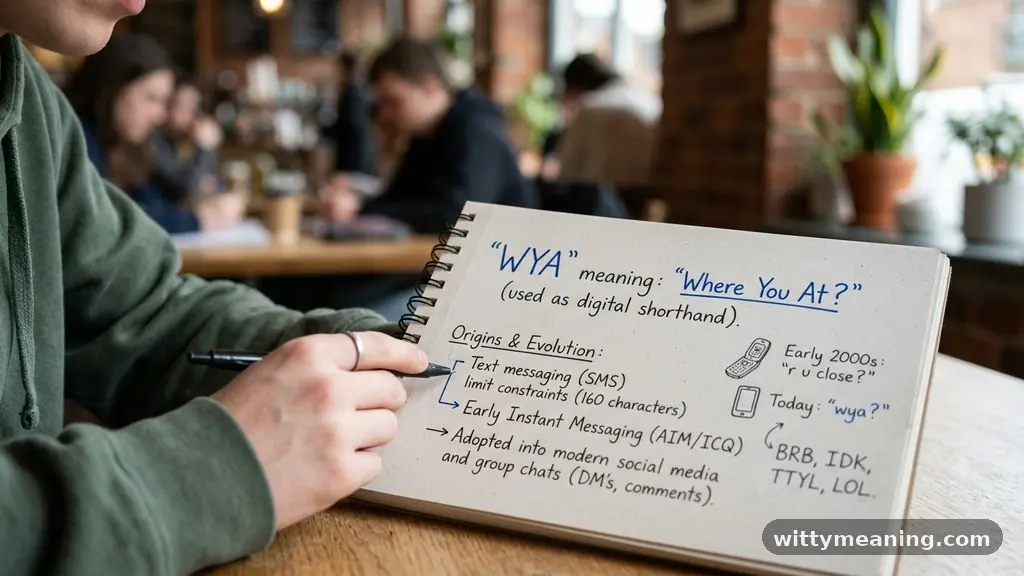 "WYA" meaning: "Where You At?"
(used as digital shorthand).
Origins & Evolution:
Text messaging (SMS)
limit constraints (160 characters)
Early Instant Messaging (AIM/ICQ)
→ Adopted into modern social media
and group chats (DM's, comments).
Early 2000s:
"r u close?"
Today: "wya?"
BRB, IDK,
TTYL, LOL.
wittymeaning.com